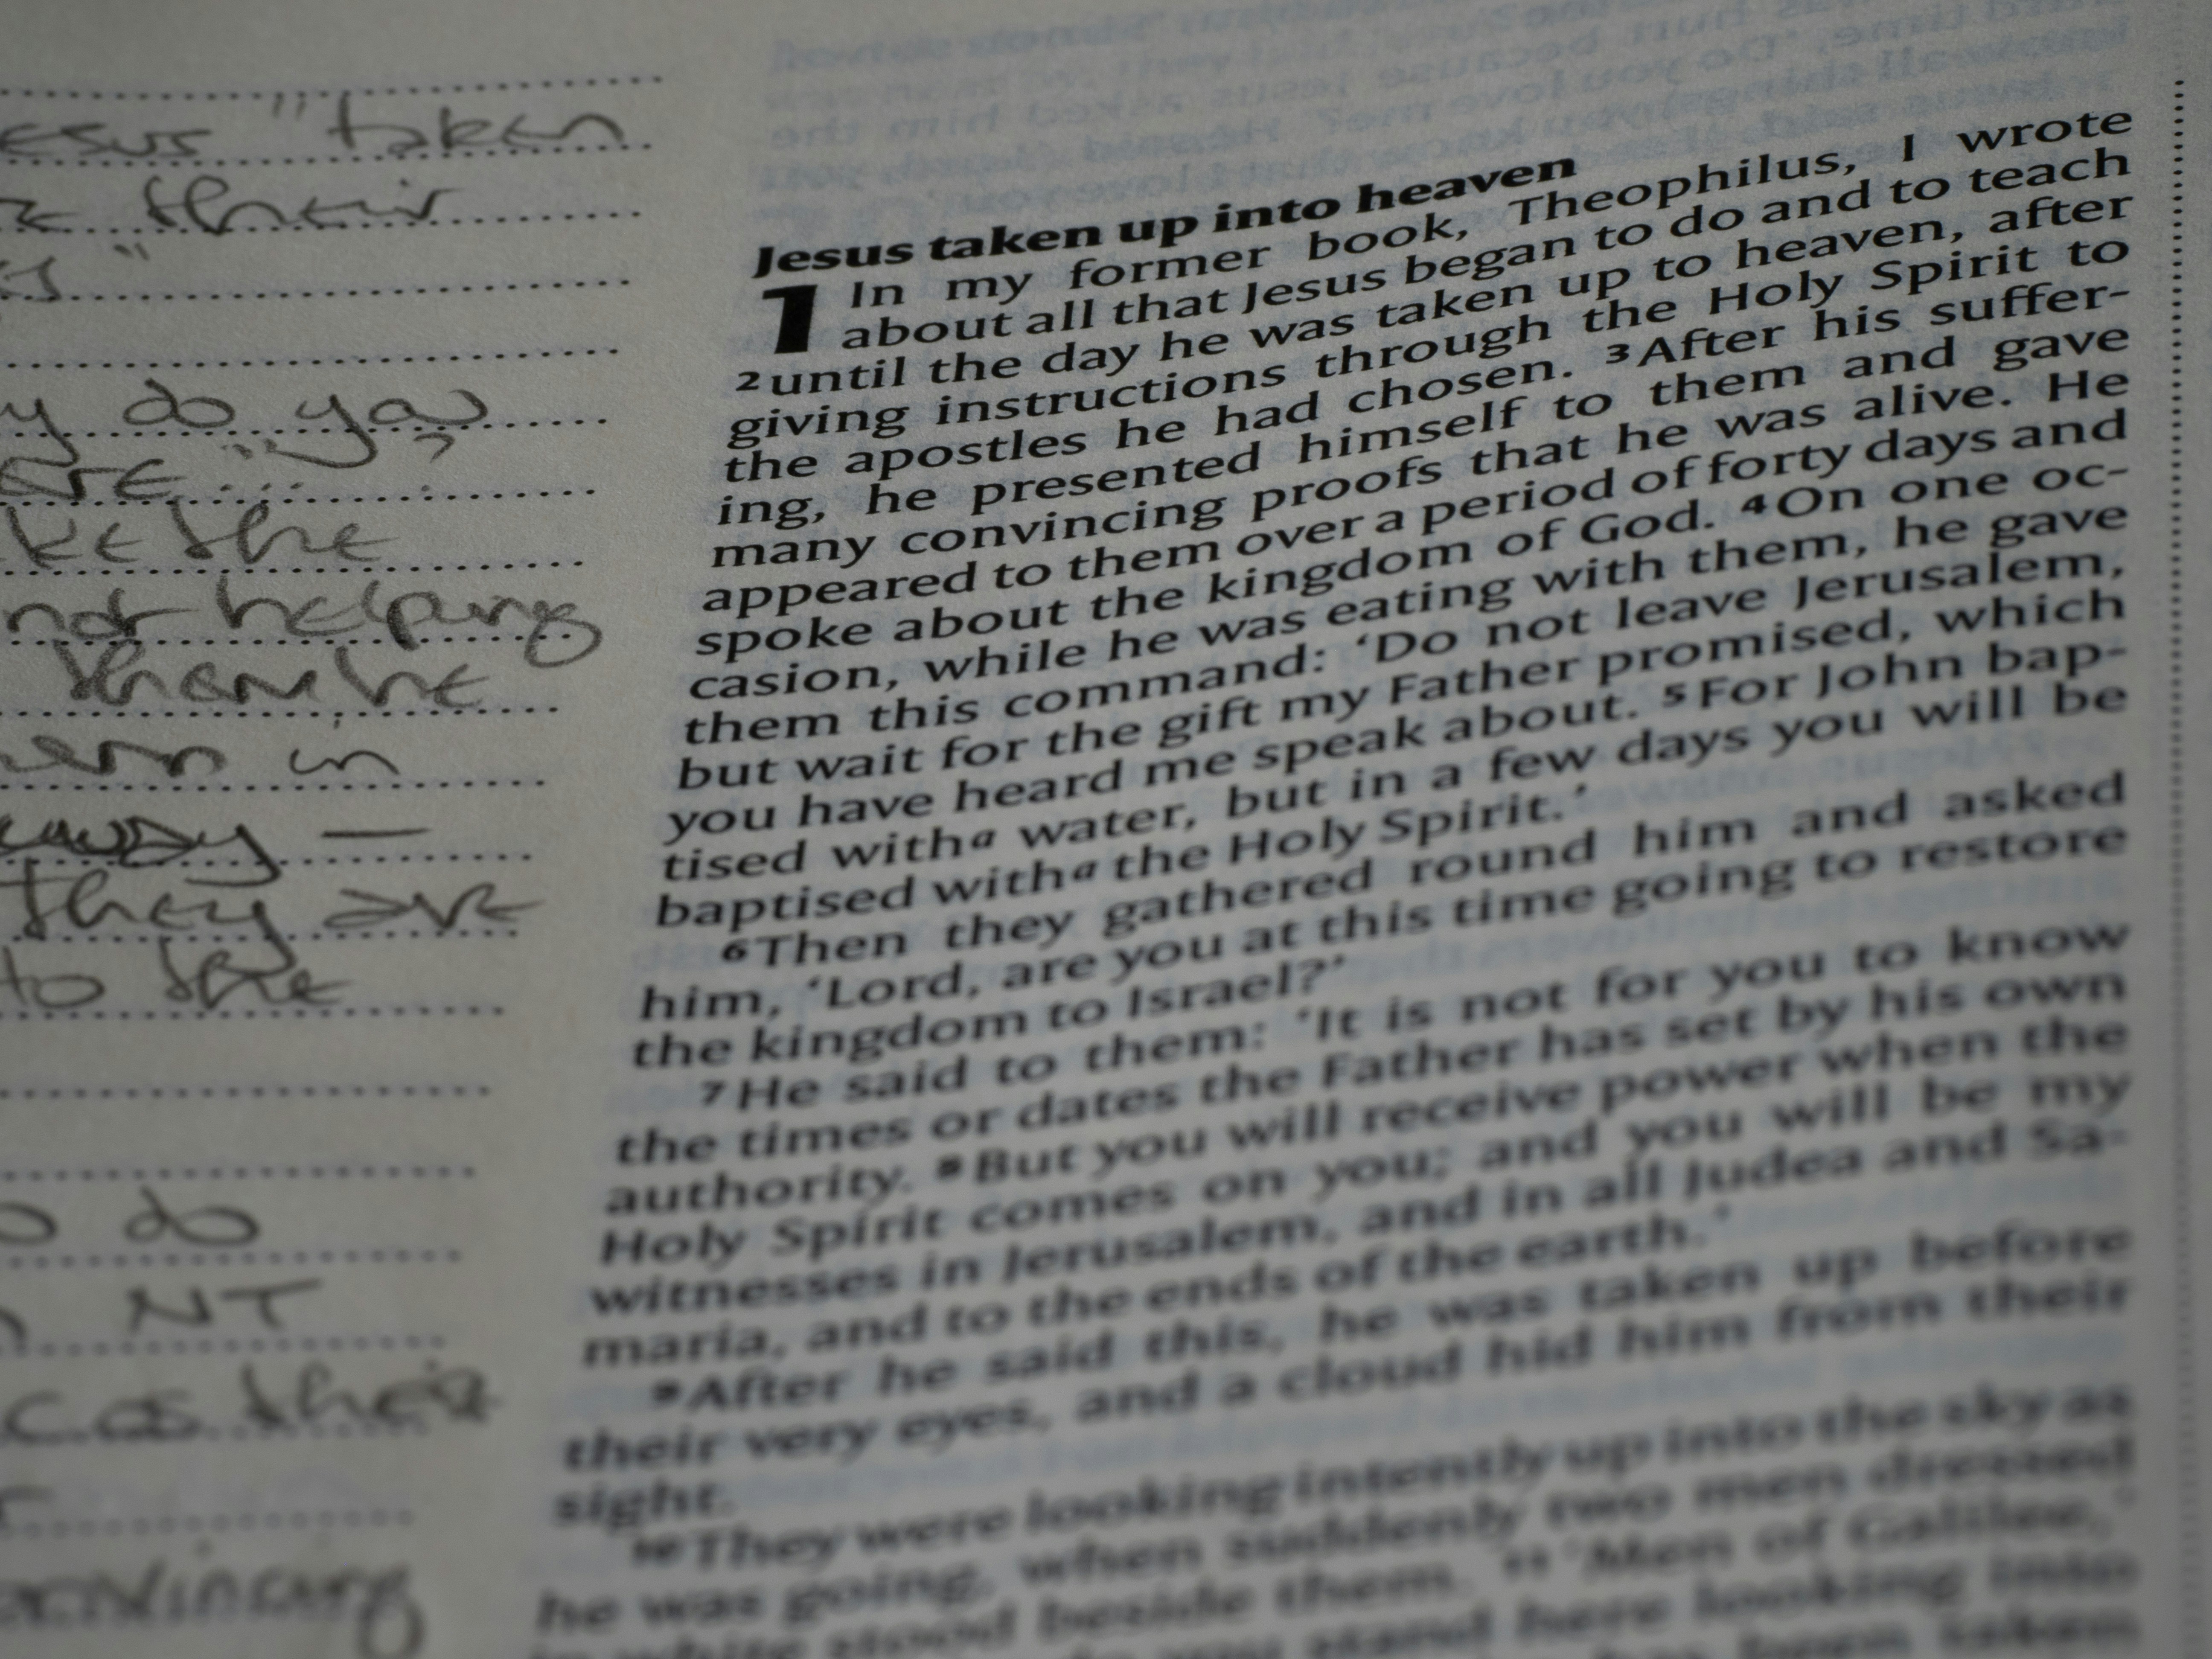 esus "taken
their
"
y do you
ke the
not helping
in
they are
to the
do
NT
as their
Jesus taken up into heaven
1 In my former book, Theophilus, I wrote
about all that Jesus began to do and to teach
2 until the day he was taken up to heaven, after
giving instructions through the Holy Spirit to
the apostles he had chosen. 3 After his suffer-
ing, he presented himself to them and gave
many convincing proofs that he was alive. He
appeared to them over a period of forty days and
spoke about the kingdom of God. 4 On one oc-
casion, while he was eating with them, he gave
them this command: ‘Do not leave Jerusalem,
but wait for the gift my Father promised, which
you have heard me speak about. 5 For John bap-
tised with a water, but in a few days you will be
baptised with a the Holy Spirit.’
6 Then they gathered round him and asked
him, ‘Lord, are you at this time going to restore
the kingdom to Israel?’
7 He said to them: ‘It is not for you to know
the times or dates the Father has set by his own
authority. 8 But you will receive power when the
Holy Spirit comes on you; and you will be my
witnesses in Jerusalem, and in all Judea and Sa-
maria, and to the ends of the earth.’
9 After he said this, he was taken up before
their very eyes, and a cloud hid him from their
sight.
10 They were looking intently up into the sky as
he was going, when suddenly two men dressed
in white stood beside them. 11 ‘Men of Galilee,’
stand here looking into
been taken